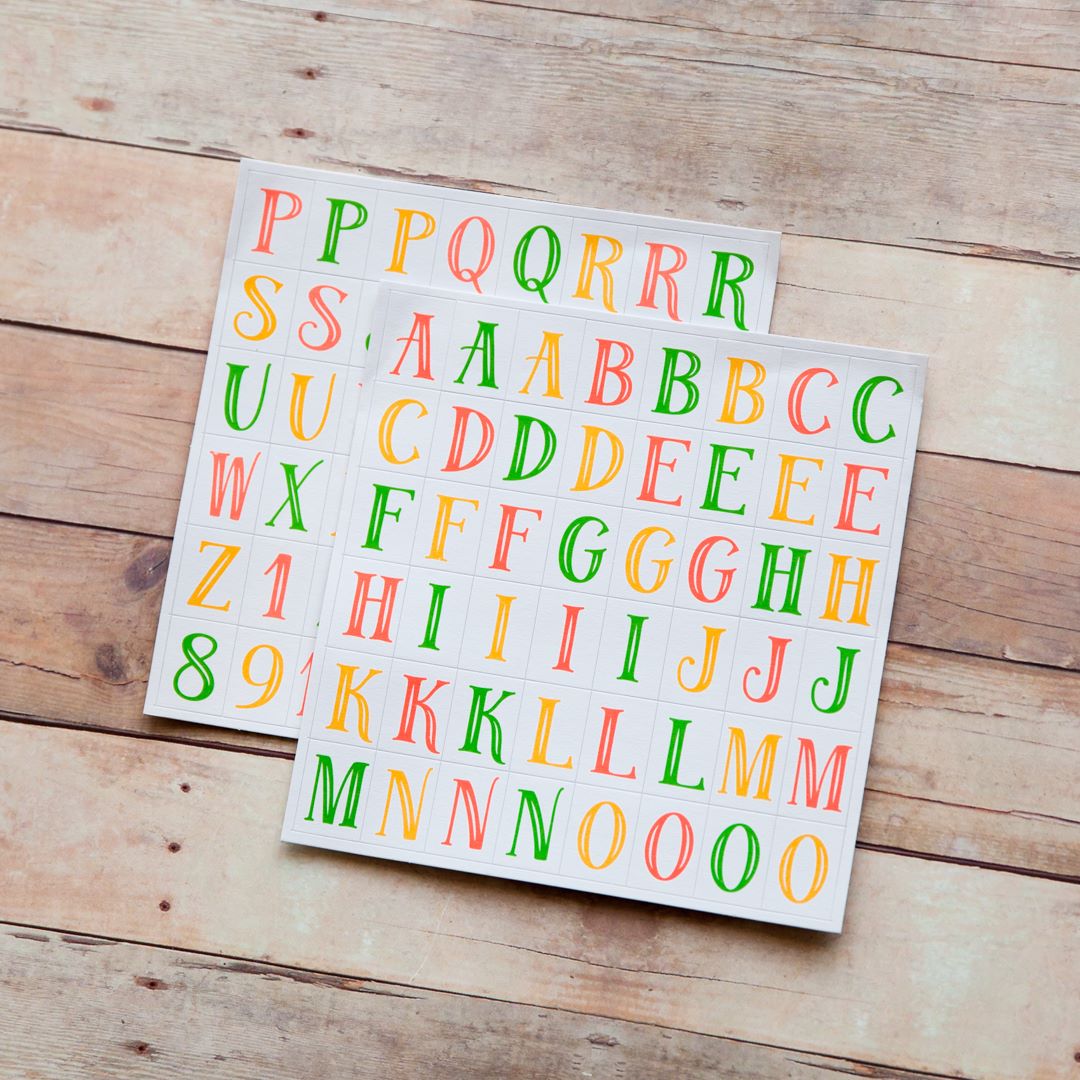 P P P Q Q R R R
S S
U U
W X
Z 1
8 9
A A A B B B C C
C D D D E E E E
F F F G G G H H
H I I I I J J J
K K K L L L M M
M N N N O O O O